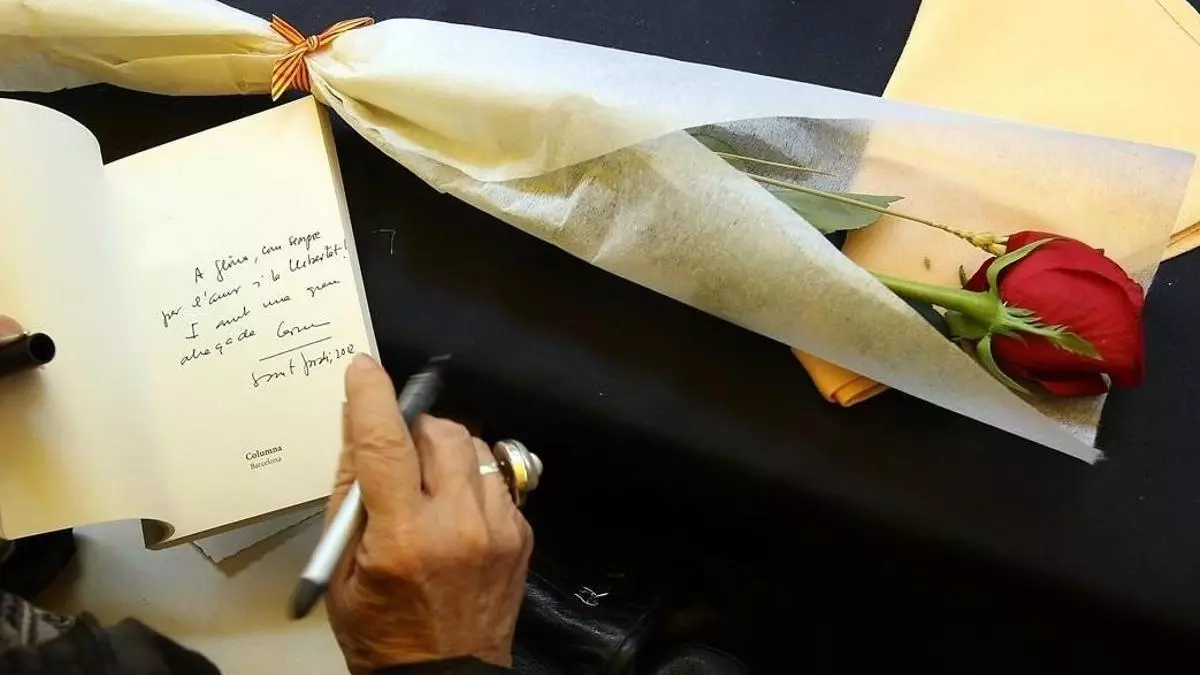 A Glòria, com sempre
per l'amor i la llibertat!
I amb una gran
abraçada Carme
Sant Jordi, 2012
Columna
Barcelona